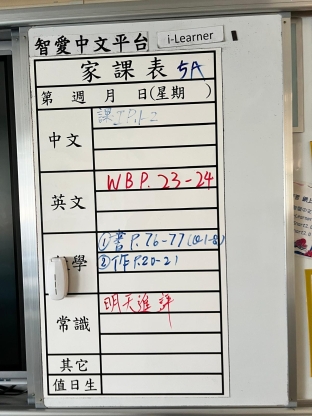 智愛中文平台
i-Learner
家課表 5A
第 週 月 日(星期 )
中文
英文 WB P. 23-24
學 ①書 P. 76-77 (Q1-8)
②作 P. 20-21
常識 明天進評
其它
值日生